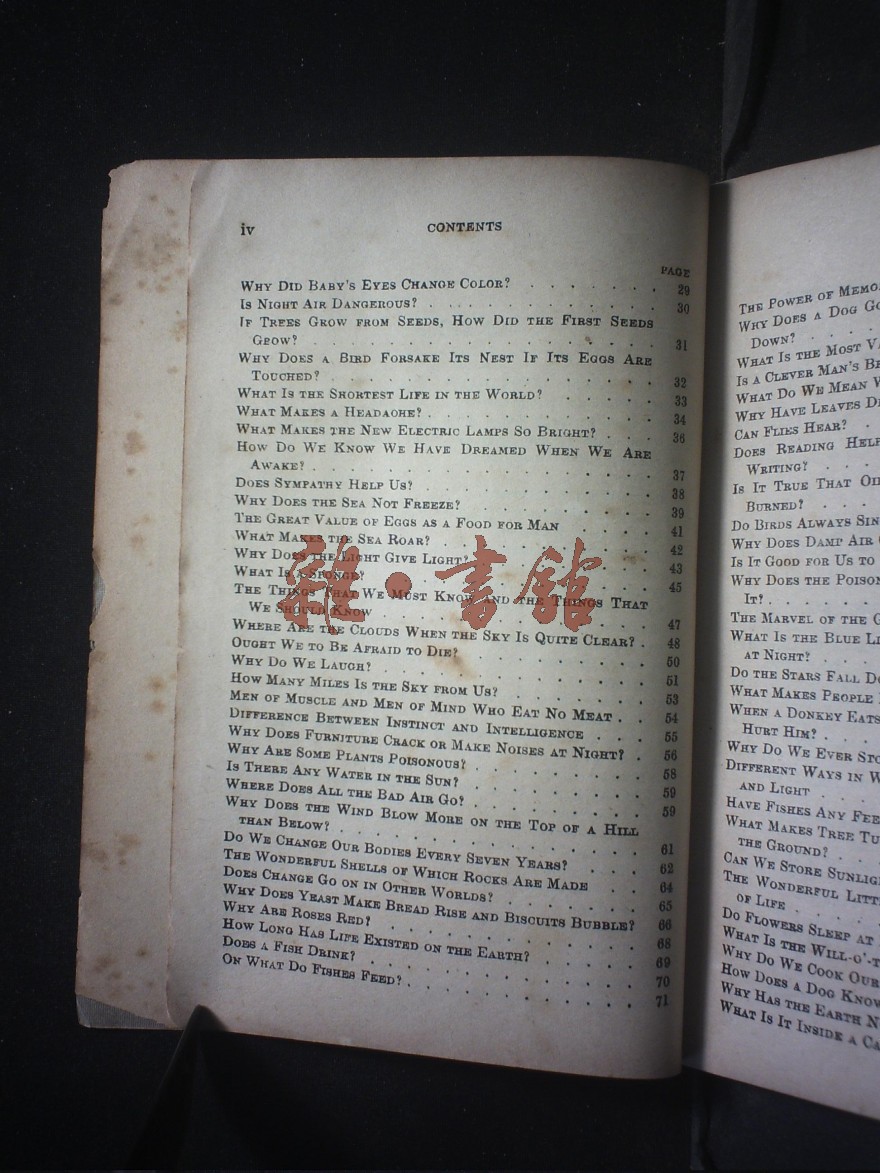 iv CONTENTS
PAGE
WHY DID BABY'S EYES CHANGE COLOR? . . . . . . . 29
IS NIGHT AIR DANGEROUS? . . . . . . . . . . . 30
IF TREES GROW FROM SEEDS, HOW DID THE FIRST SEEDS
GROW? . . . . . . . . . . . . . . . 31
WHY DOES A BIRD FORSAKE ITS NEST IF ITS EGGS ARE
TOUCHED? . . . . . . . . . . . . . . 32
WHAT IS THE SHORTEST LIFE IN THE WORLD? . . . . . 33
WHAT MAKES A HEADACHE? . . . . . . . . . . . 34
WHAT MAKES THE NEW ELECTRIC LAMPS SO BRIGHT? . . . 36
HOW DO WE KNOW WE HAVE DREAMED WHEN WE ARE
AWAKE? . . . . . . . . . . . . . . . 37
DOES SYMPATHY HELP US? . . . . . . . . . . . 38
WHY DOES THE SEA NOT FREEZE? . . . . . . . . . 39
THE GREAT VALUE OF EGGS AS A FOOD FOR MAN . . . . 41
WHAT MAKES THE SEA ROAR? . . . . . . . . . . 42
WHY DOES THE LIGHT GIVE LIGHT? . . . . . . . . 43
WHAT IS A SPONGE? . . . . . . . . . . . . . 45
THE THINGS THAT WE MUST KNOW AND THE THINGS THAT
WE SHOULD KNOW . . . . . . . . . . . . 47
WHERE ARE THE CLOUDS WHEN THE SKY IS QUITE CLEAR? . 48
OUGHT WE TO BE AFRAID TO DIE? . . . . . . . . 50
WHY DO WE LAUGH? . . . . . . . . . . . . . 51
HOW MANY MILES IS THE SKY FROM US? . . . . . . 53
MEN OF MUSCLE AND MEN OF MIND WHO EAT NO MEAT . . 54
DIFFERENCE BETWEEN INSTINCT AND INTELLIGENCE . . . 55
WHY DOES FURNITURE CRACK OR MAKE NOISES AT NIGHT? . 56
WHY ARE SOME PLANTS POISONOUS? . . . . . . . . 58
IS THERE ANY WATER IN THE SUN? . . . . . . . . 59
WHERE DOES ALL THE BAD AIR GO? . . . . . . . . 59
WHY DOES THE WIND BLOW MORE ON THE TOP OF A HILL
THAN BELOW? . . . . . . . . . . . . . 61
DO WE CHANGE OUR BODIES EVERY SEVEN YEARS? . . . . 62
THE WONDERFUL SHELLS OF WHICH ROCKS ARE MADE . . 64
DOES CHANGE GO ON IN OTHER WORLDS? . . . . . . 65
WHY DOES YEAST MAKE BREAD RISE AND BISCUITS BUBBLE? 66
WHY ARE ROSES RED? . . . . . . . . . . . . 68
HOW LONG HAS LIFE EXISTED ON THE EARTH? . . . . . 69
DOES A FISH DRINK? . . . . . . . . . . . . 70
ON WHAT DO FISHES FEED? . . . . . . . . . . . 71
THE POWER OF MEMO
WHY DOES A DOG GO
DOWN? . . . .
WHAT IS THE MOST VA
IS A CLEVER MAN'S BR
WHAT DO WE MEAN W
WHY HAVE LEAVES DI
CAN FLIES HEAR? . .
DOES READING HELP
WRITING? . . .
IS IT TRUE THAT OIL
BURNED? . . .
DO BIRDS ALWAYS SIN
WHY DOES DAMP AIR
IS IT GOOD FOR US TO
WHY DOES THE POISON
IT? . . . .
THE MARVEL OF THE G
WHAT IS THE BLUE LI
AT NIGHT? . . .
DO THE STARS FALL DO
WHAT MAKES PEOPLE
WHEN A DONKEY EATS
HURT HIM? . . .
WHY DO WE EVER STO
DIFFERENT WAYS IN W
AND LIGHT . . .
HAVE FISHES ANY FEE
WHAT MAKES TREE TU
THE GROUND? . .
CAN WE STORE SUNLIG
THE WONDERFUL LITT
OF LIFE . . . .
DO FLOWERS SLEEP AT
WHAT IS THE WILL-O'-T
WHY DO WE COOK OUR
HOW DOES A DOG KNOW
WHY HAS THE EARTH N
WHAT IS IT INSIDE A CA
龍·書館